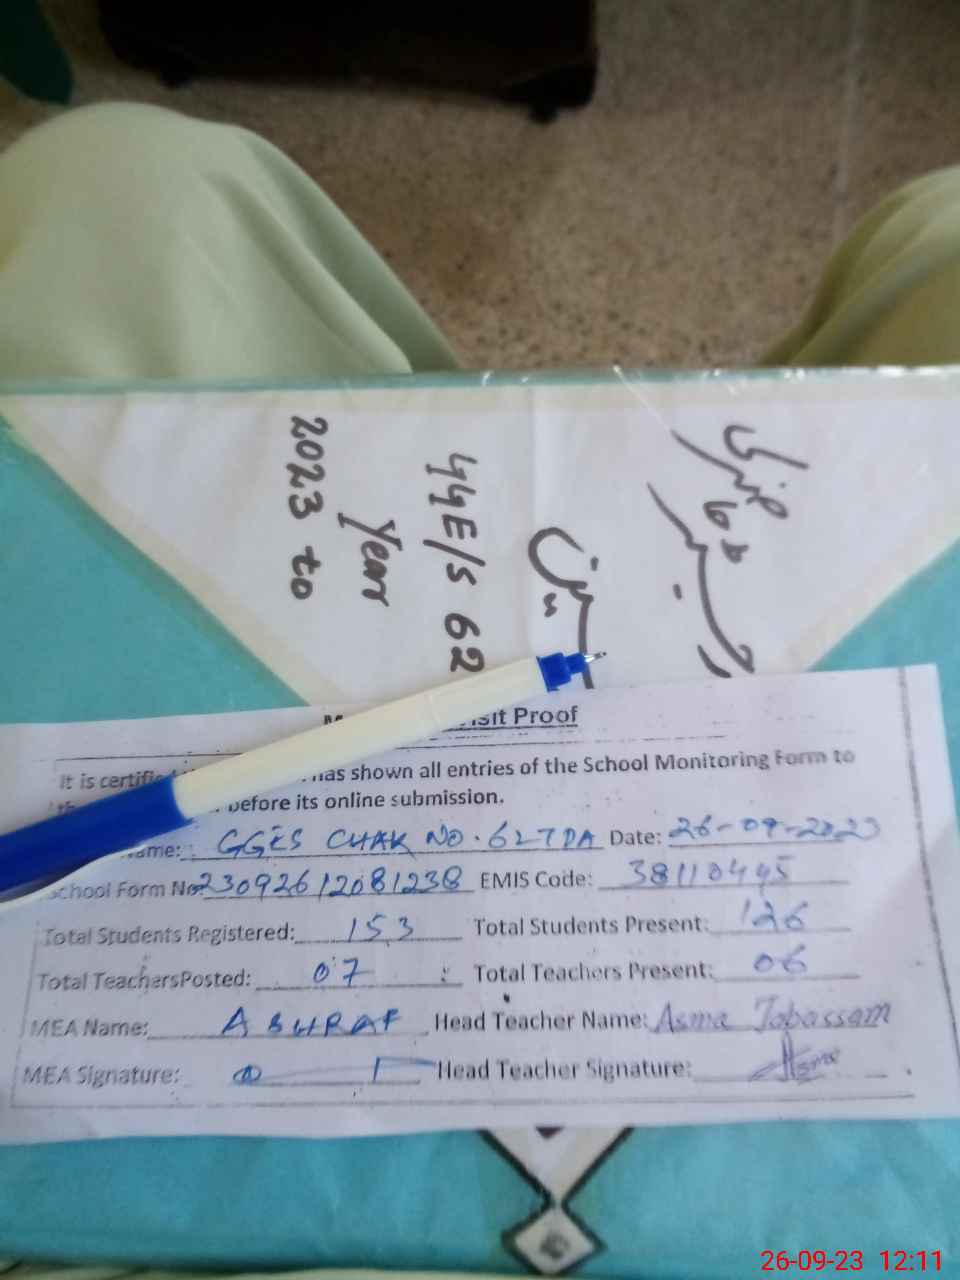 حاضری
رجسٹر
2023 to
Year
GGE/S 62
Visit Proof
It is certified has shown all entries of the School Monitoring Form to
before its online submission.
Name: GGES CHAK NO. 62TDA Date: 26-09-2023
School Form No: 23092612081238 EMIS Code: 38110495
Total Students Registered: 153 Total Students Present: 126
Total TeachersPosted: 07 Total Teachers Present: 06
MEA Name: ASHRAF Head Teacher Name: Asma Tabassam
MEA Signature: Head Teacher Signature: Asma
26-09-23 12:11